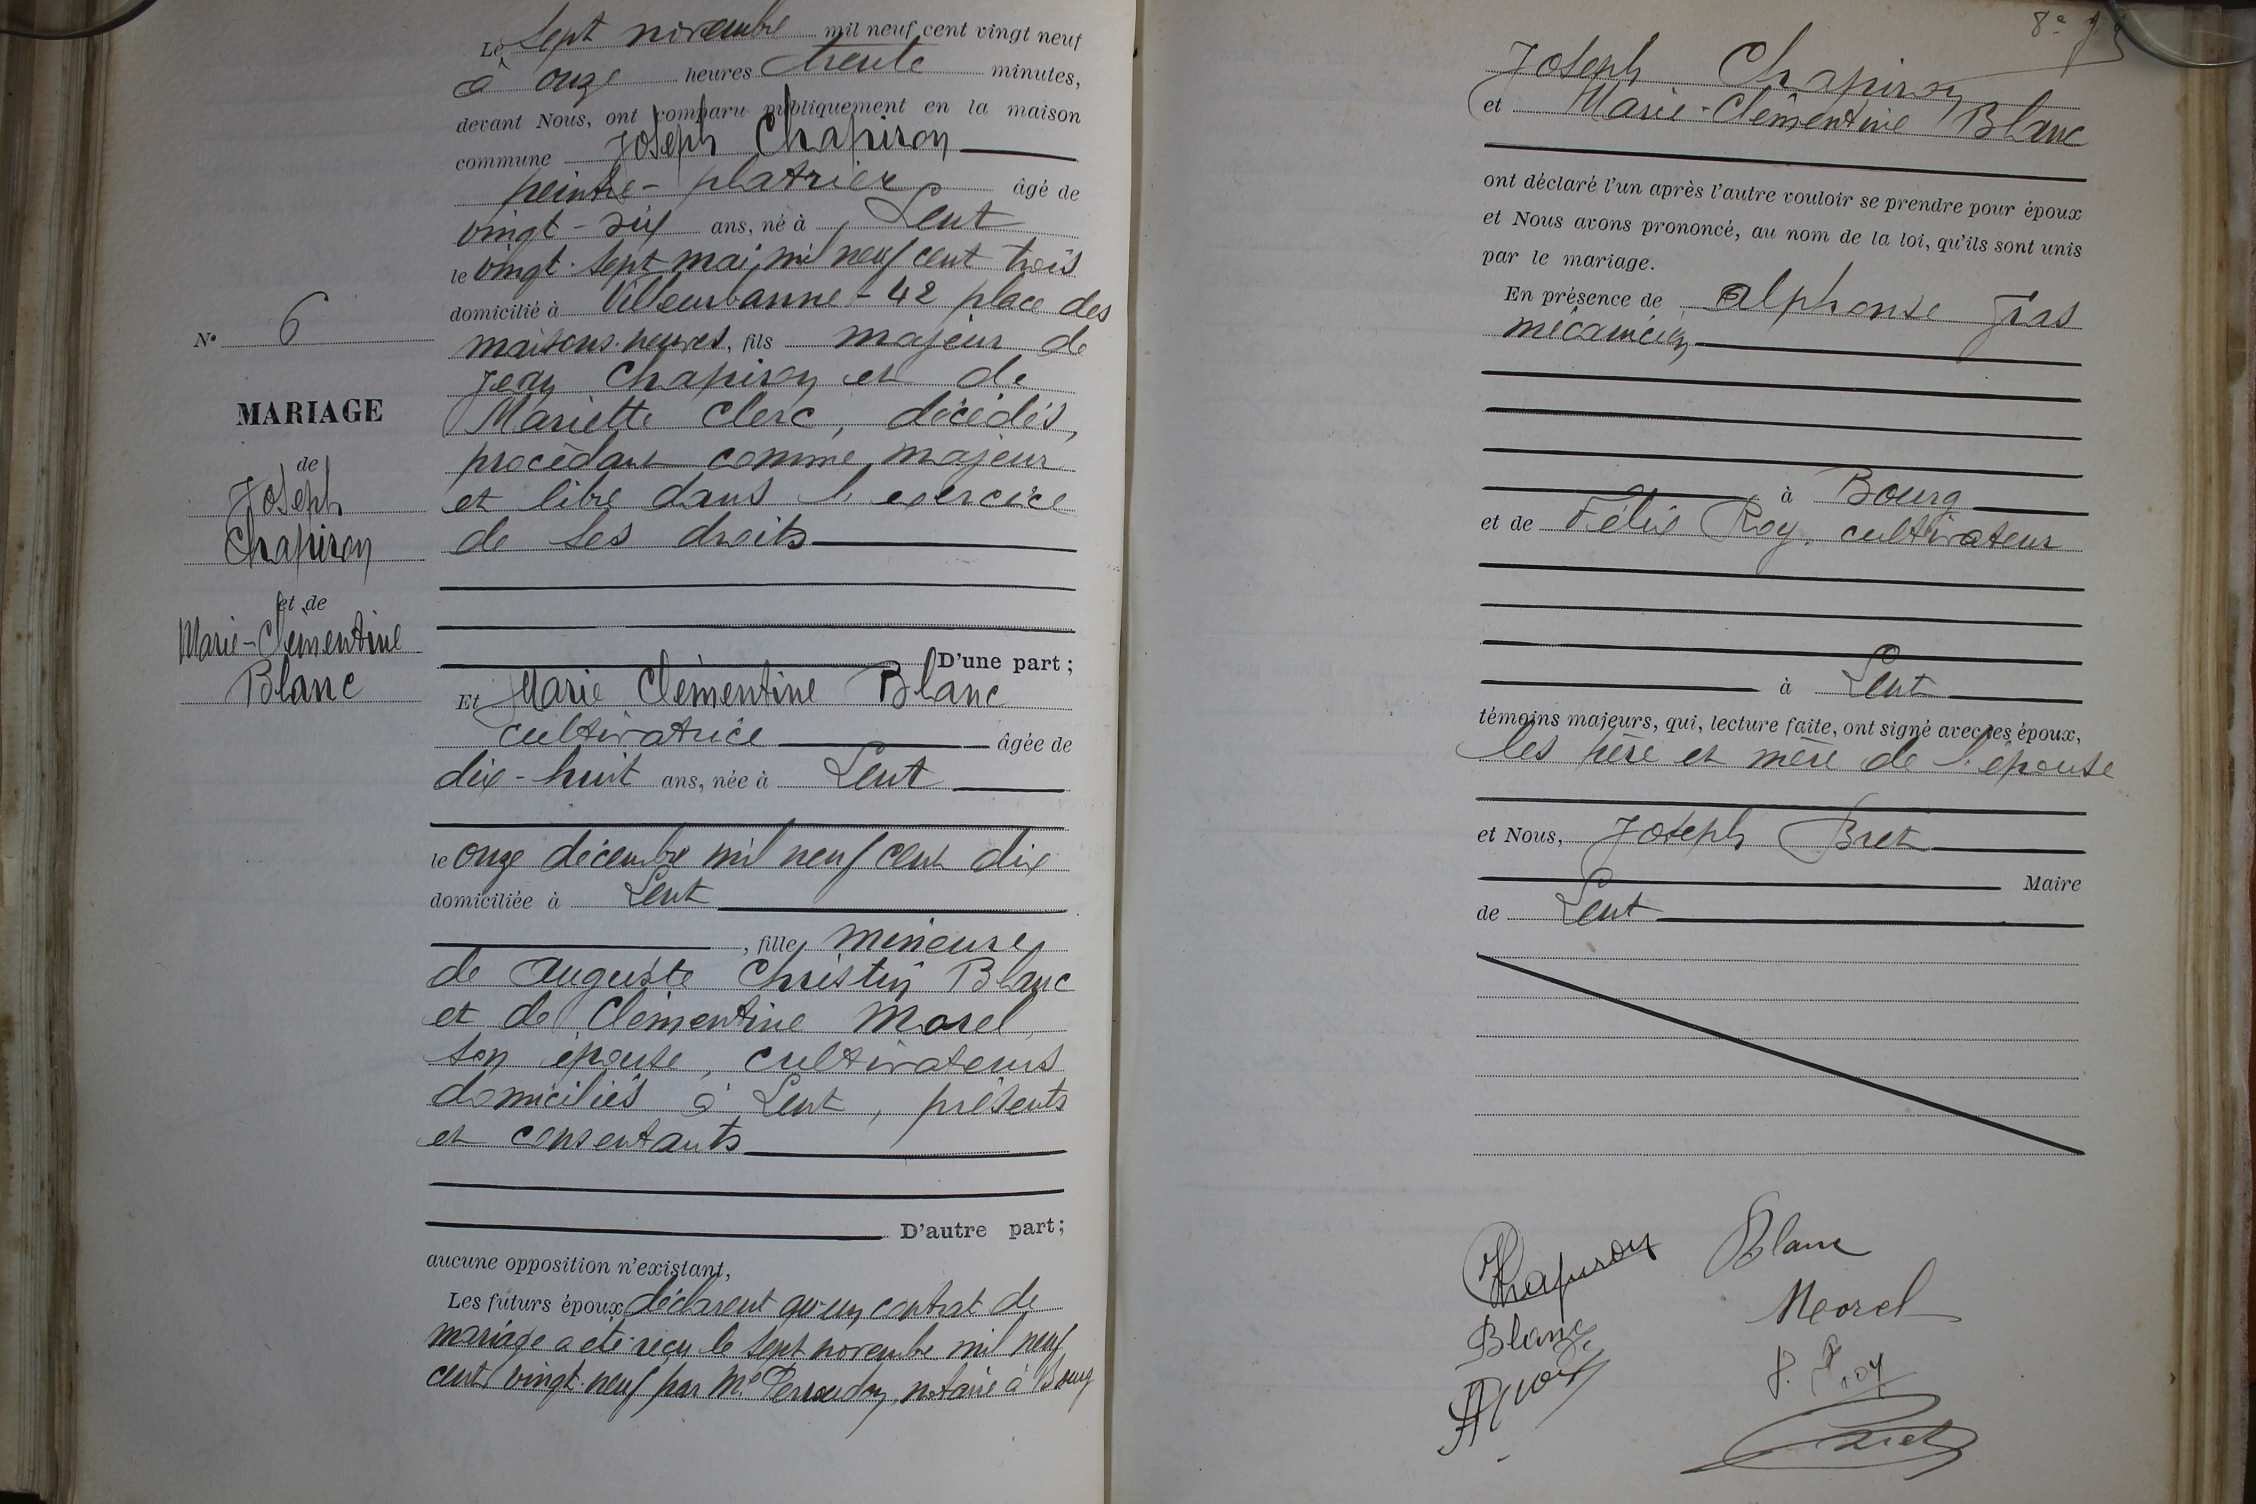 Le sept novembre mil neuf cent vingt neuf
à onze heures trente minutes,
devant Nous, ont comparu publiquement en la maison
commune Joseph Chapiron
peintre-platrier âgé de
vingt-six ans, né à Lent
le vingt-sept mai mil neuf cent trois
domicilié à Villeurbanne - 42 place des
maisons neuves, fils majeur de
Jean Chapiron et de
Mariette Clerc, décédés,
procédant comme majeur
et libre dans l'exercice
de ses droits
D'une part ;
Et Marie Clémentine Blanc
cultivatrice âgée de
dix-huit ans, née à Lent
le onze décembre mil neuf cent dix
domiciliée à Lent
, fille mineure
de Auguste Christin Blanc
et de Clémentine Morel
son épouse, cultivateurs
domiciliés à Lent, présents
et consentants
D'autre part ;
aucune opposition n'existant,
Les futurs époux déclarent qu'un contrat de
mariage a été reçu le sept novembre mil neuf
cent vingt-neuf par Me notaire à Bourg
N° 6
MARIAGE
de
Joseph
Chapiron
et de
Marie-Clémentine
Blanc
Joseph Chapiron
et Marie-Clémentine Blanc
ont déclaré l'un après l'autre vouloir se prendre pour époux
et Nous avons prononcé, au nom de la loi, qu'ils sont unis
par le mariage.
En présence de Alphonse
mécanicien
à Bourg
et de Félix Roy, cultivateur
à Lent
témoins majeurs, qui, lecture faite, ont signé avec les époux,
les père et mère de l'épouse
et Nous, Joseph Bret
Maire
de Lent
Chapiron Blanc
Blanc Morel
F. Roy
Bret